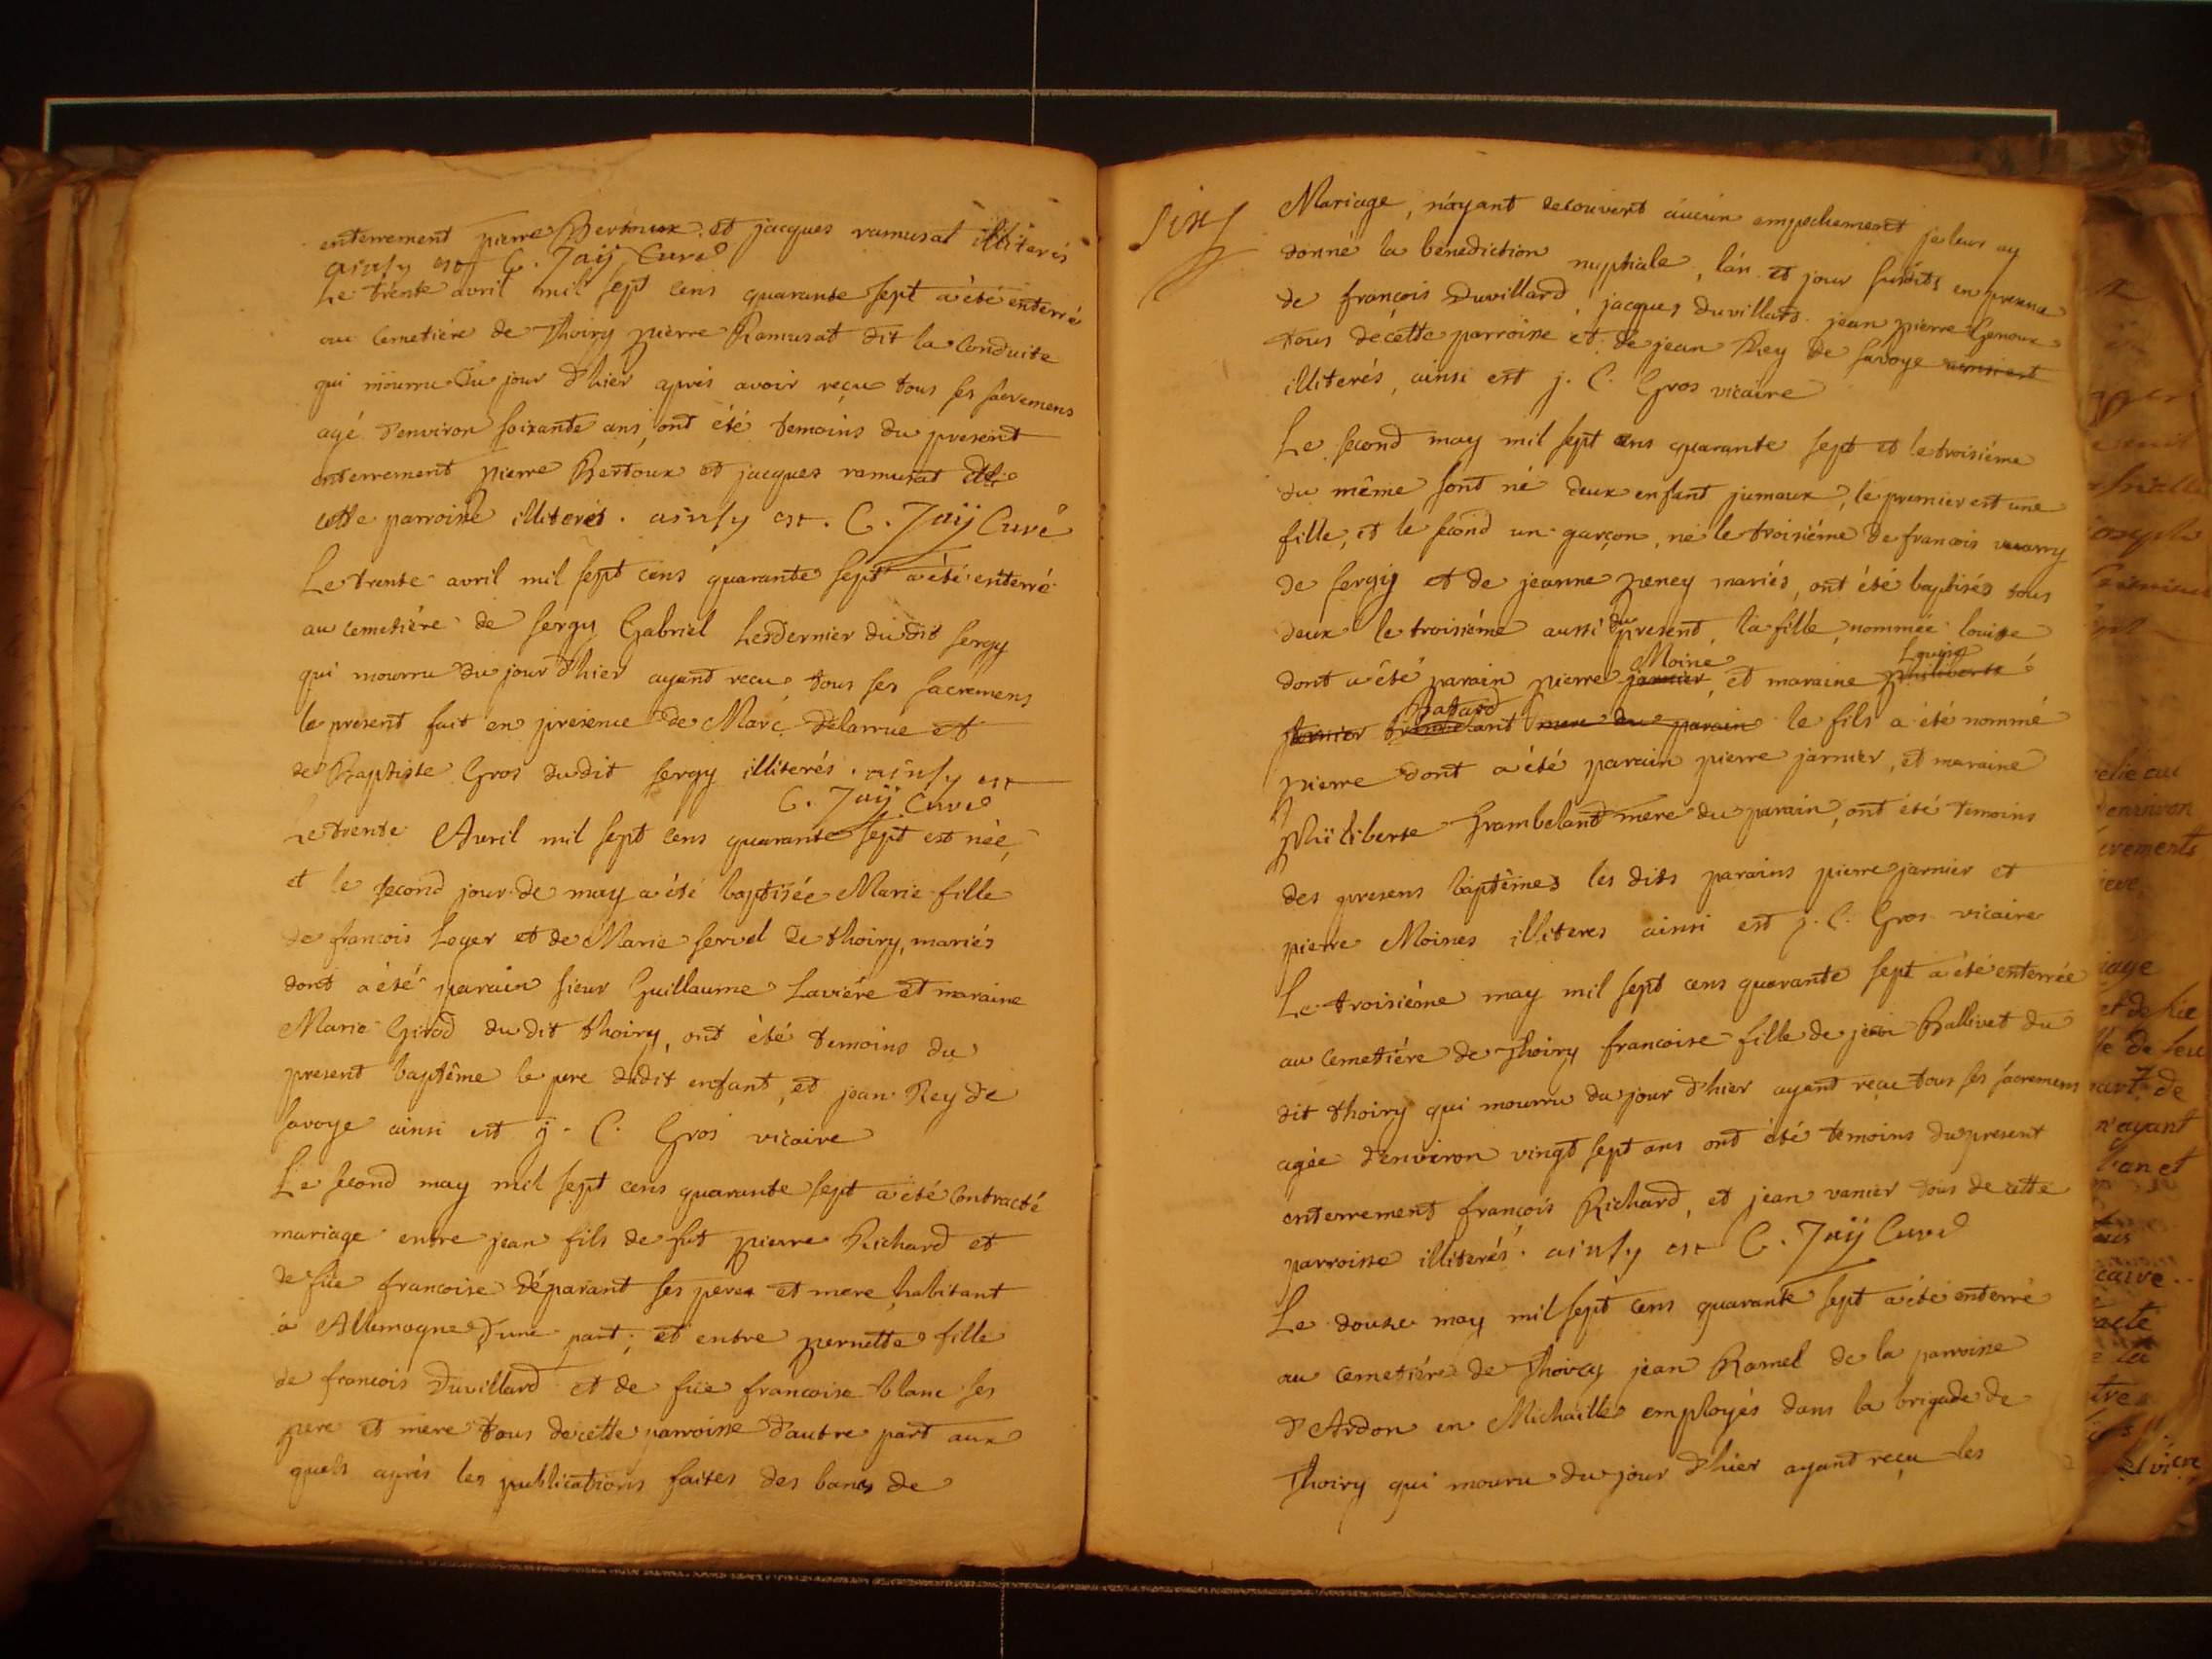 enterrement pierre Bertoux et jacques ramusat illiterés
ainsy est C. Jaÿ Curé
Le trente avril mil sept cens quarante sept a été enterré
au cemetiére de Thoiry pierre Ramusat dit la Conduite
qui mourru du jour d'hier aprés avoir reçu tous ses sacremens
agé d'environ soixante ans, ont été temoins du present
enterrement pierre Bertoux et jacques ramusat de
cette parroisse illiterés. ainsy est. C. Jaÿ Curé
Le trente avril mil sept cens quarante sept a été enterré
au cemetiére de sergy Gabriel Lesdernier dudit sergy
qui mourru du jour d'hier ayant recu tous ses sacremens
le present fait en presence de Marc Delarrue et
de Baptiste Gros dudit sergy illiterés. ainsy est
C. Jaÿ Curé
Le trente Avril mil sept cens quarante sept est née,
et le second jour de may a été baptisée Marie fille
de francois Loger et de Marie servel de thoiry, mariés
dont a été parain sieur Guillaume Laviére et maraine
Marie Girod du dit thoiry, ont été temoins du
present baptême le pere dudit enfant, et jean Rey de
savoye ainsi est j. C. Gros vicaire
Le second may mil sept cens quarante sept a été Contracté
mariage entre jean fils de fut pierre Richard et
de füe francoise déparant ses peres et mere habitant
à Allemogne d'une part; et entre pernette fille
de francois Duvillard et de füe francoise blanc ses
pere et mere tous de cette parroisse d'autre part aux
quels aprés les publications faites des bancs de
Mariage, n'ayant decouvert aucun empechement je leur ay
donné la benediction nuptiale, l'an et jour susdits en presence
de françois Duvillard, jacques duvillard jean pierre Genoux
tous de cette parroisse et de jean Rey de savoye ainsi est
illiterés, ainsi est j. C. Gros vicaire
Le second may mil sept cens quarante sept et le troisiéme
du même sont né deux enfant jumaux, le premier est une
fille, et le second un garçon, né le troisiéme de francois
de sergy et de jeanne peney mariés, ont été baptisés tous
deux le troisiéme aussi du present, la fille nommée louise
dont a été parain pierre janier Moine, et maraine philiberte Louise
le fils a été nommé
pierre dont a été parain pierre jarnier, et maraine
philiberte Grambeland mere du parain, ont été temoins
des presens baptêmes les dits parains pierre jarnier et
pierre Moines illiteres ainsi est j. C. Gros vicaire
Le troisiéme may mil sept cens quarante sept a été enterrée
au cemetiére de Thoiry francoise fille de jean Ballivet du
dit thoiry qui mourru du jour d'hier ayant reçu tous ses sacremens
agée d'environ vingt sept ans ont été temoins du present
enterrement françois Richard, et jean vanier tous de cette
parroisse illiterés. ainsy est C. Jaÿ Curé
Le douze may mil sept cens quarante sept a été enterré
au cemetiére de Thoiry jean Ramel de la parroisse
d'Ardon en Michaille employés dans la brigade de
Thoiry qui mouru du jour d'hier ayant reçu les